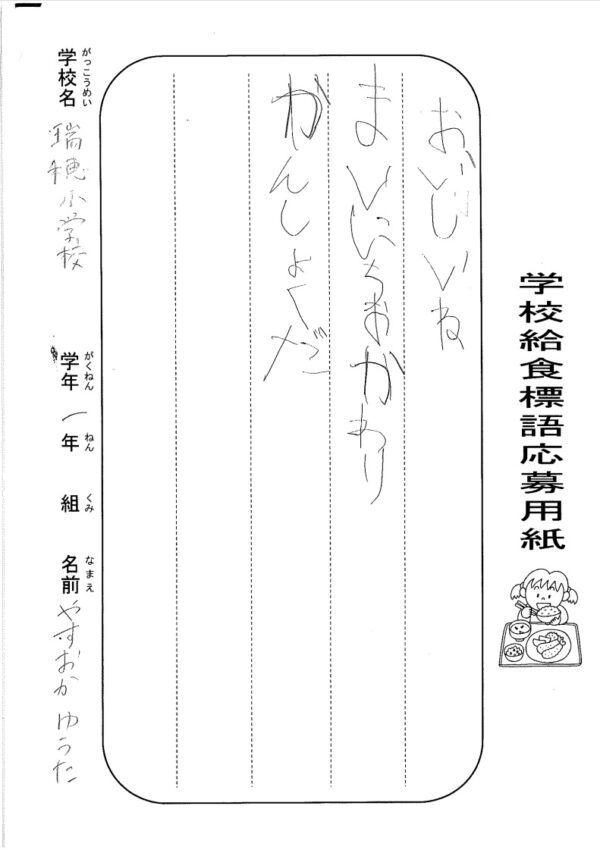 学校給食標語応募用紙
おいしいね
まいにちおかわり
かんしょくだ
がっこうめい
学校名 瑞穂小学校
がくねん ねん くみ なまえ
学年 一年 組 名前 やすおか ゆうた